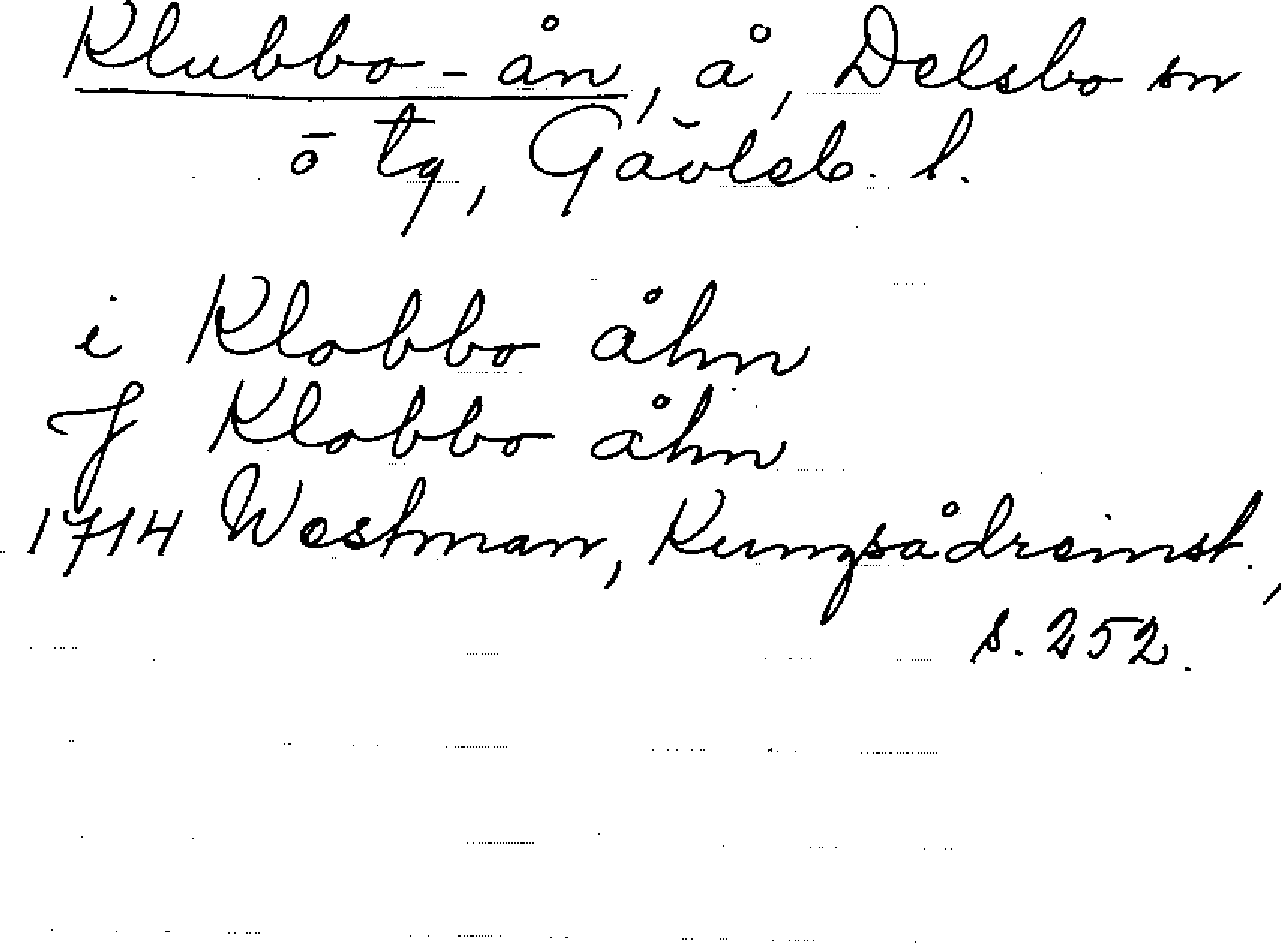 Klubbo-ån, å, Delsbo sn
o tg, Gävleb. l.
i Klobbo åhn
J Klobbo åhn
1714 Westman, Kungsådreinst.,
s. 252.